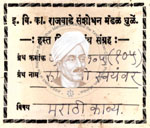 इ. वि. का. राजवाडे संशोधन मंडळ धुळें.
हस्त लिखित ग्रंथ संग्रह :
ग्रंथ क्रमांक
ग्रंथ नाम स्वयंवर
विषय मराठी काव्य.